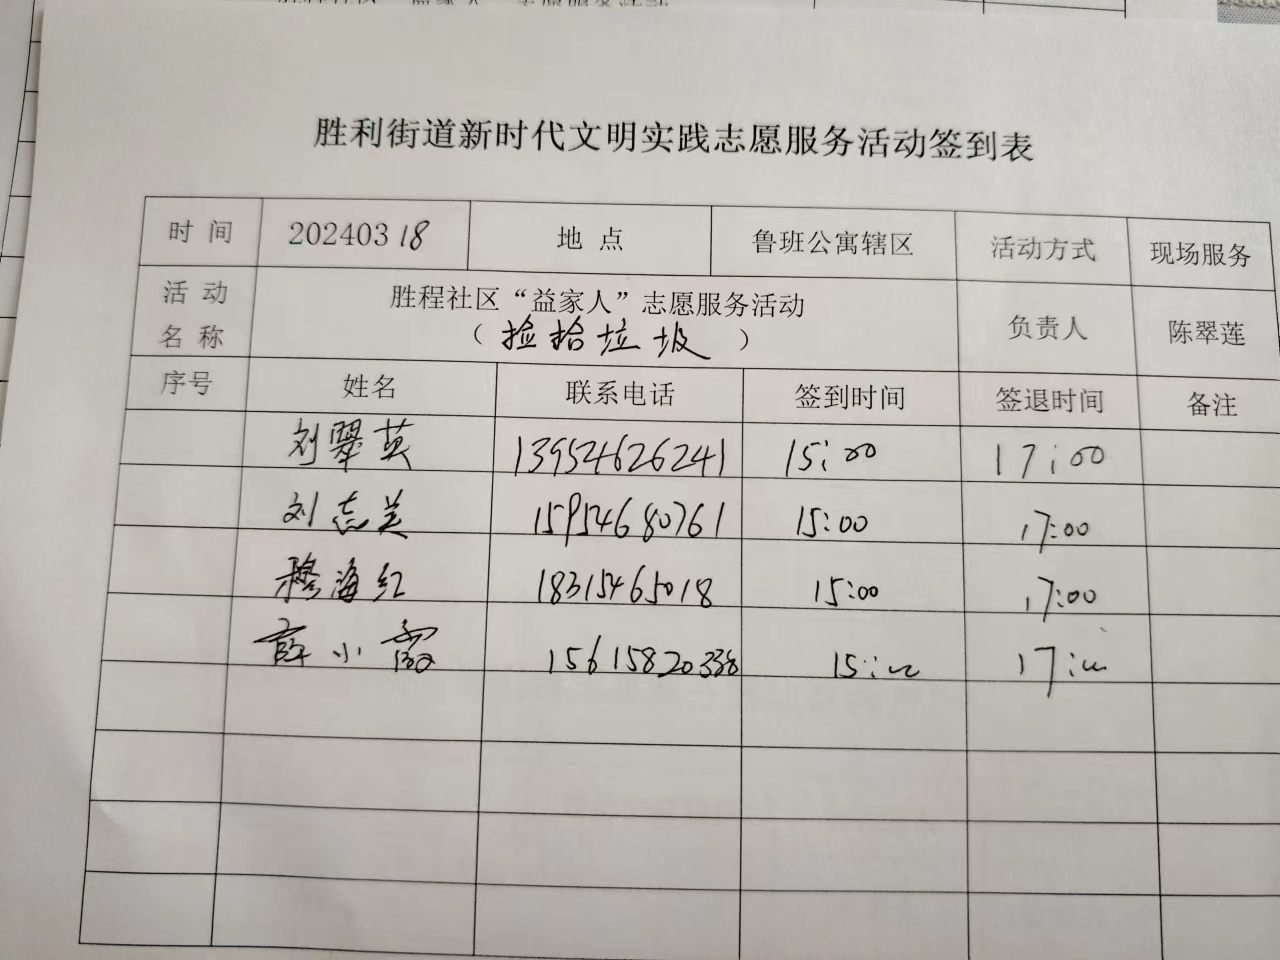 胜利街道新时代文明实践志愿服务活动签到表
时 间 20240318 地 点 鲁班公寓辖区 活动方式 现场服务
活 动 名 称 胜程社区“益家人”志愿服务活动 负责人 陈翠莲
（捡拾垃圾）
序号 姓名 联系电话 签到时间 签退时间 备注
刘翠英 13954626241 15:00 17:00
刘志兰 15954680761 15:00 17:00
穆海红 18315465018 15:00 17:00
薛小霞 15615820338 15:00 17:00